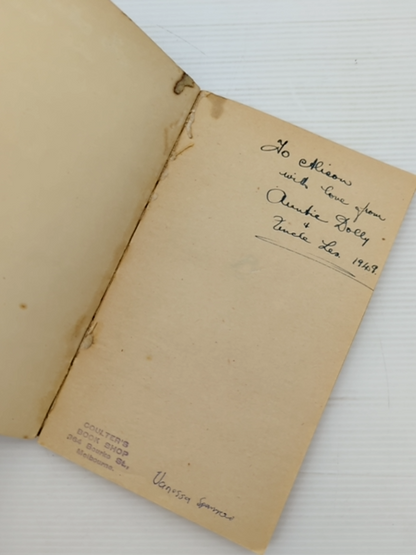 To Alison
with love from
Auntie Dolly
&
Uncle Les 1949.
COULTER'S
BOOK SHOP
Bourke St.,
Melbourne.
Vanessa Spencer